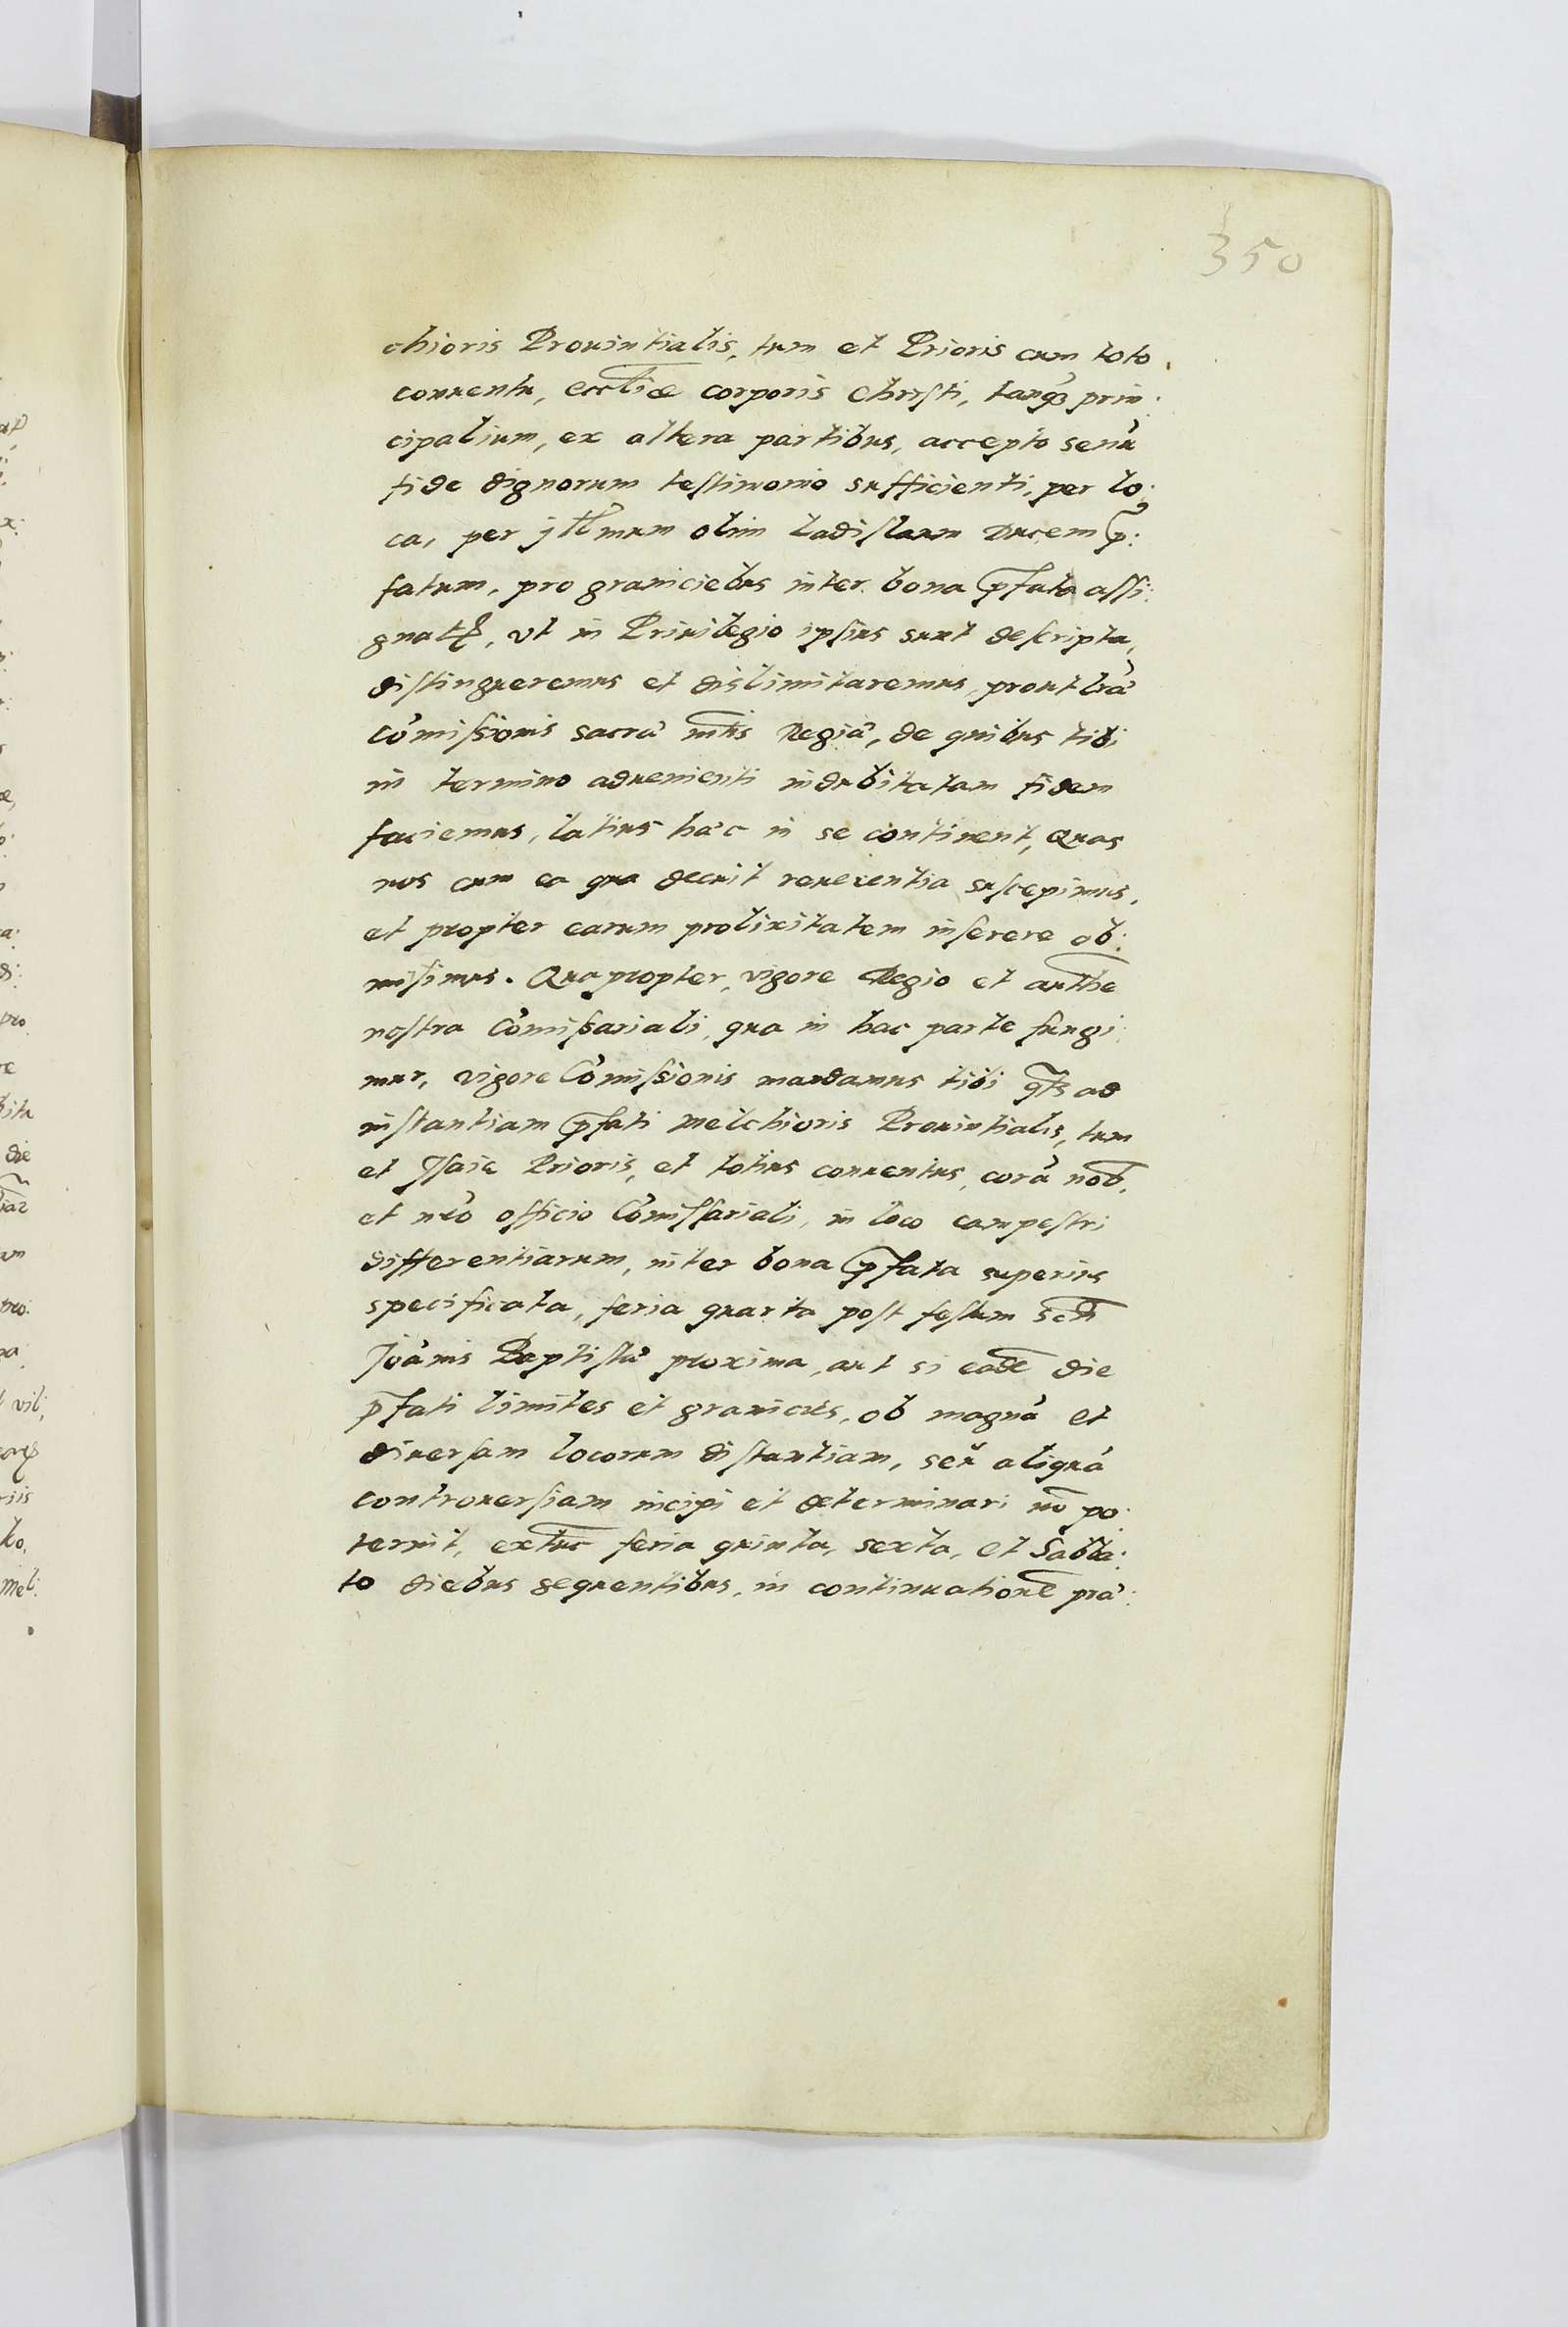 350
chioris Prouintialis, tum et Prioris cum toto
conuentu, eccl̃iæ corporis Christi, tanq̃ʒ prin:
cipalium, ex altera partibus, accepto senũ
fide dignorum testimonio sufficienti, per lo:
ca, per jll̃mum olim Ladislaum Ducem p̃:
fatum, pro graniciebus inter bona p̃fata assi:
gnatꝭ, vt in Priuilegio ipsius sunt descripta,
distingueremus et dislimitaremus, prout lrã
Cõmissionis sacrã mt̃is Regiã, de quibus tibi
in termino aduenienti indubitatam fidem
faciemus, latius hãc in se continent, Quas
nos cum ea qua decuit reuerentia suscepimus,
et propter earum prolixitatem inserere ob:
misimus. Qua propter, vigore Regio et auth̃e
nostra Cõmissariali, qua in hac parte fungi:
mur, vigore Cõmissionis mandamus tibi qt̃s ad
instantiam p̃fati Melchioris Prouintialis, tum
et Jsaie Prioris, et totius conuentus, corã nob̃,
et nrõ officio Cõmissariali, in loco campestri
differentiarum, inter bona p̃fata superius
specificata, feria quarta post festum sct̃i
Joãnis Baptistã proxima, aut si eadẽ die
p̃fati limites et granicies, ob magnã et
diuersam locorum distantiam, seu aliquã
controuersiam incipi et determinari nõ po:
terint, ext̃uc feria quinta, sexta, et Sabba:
to diebus sequentibus, in continuationẽ prã: